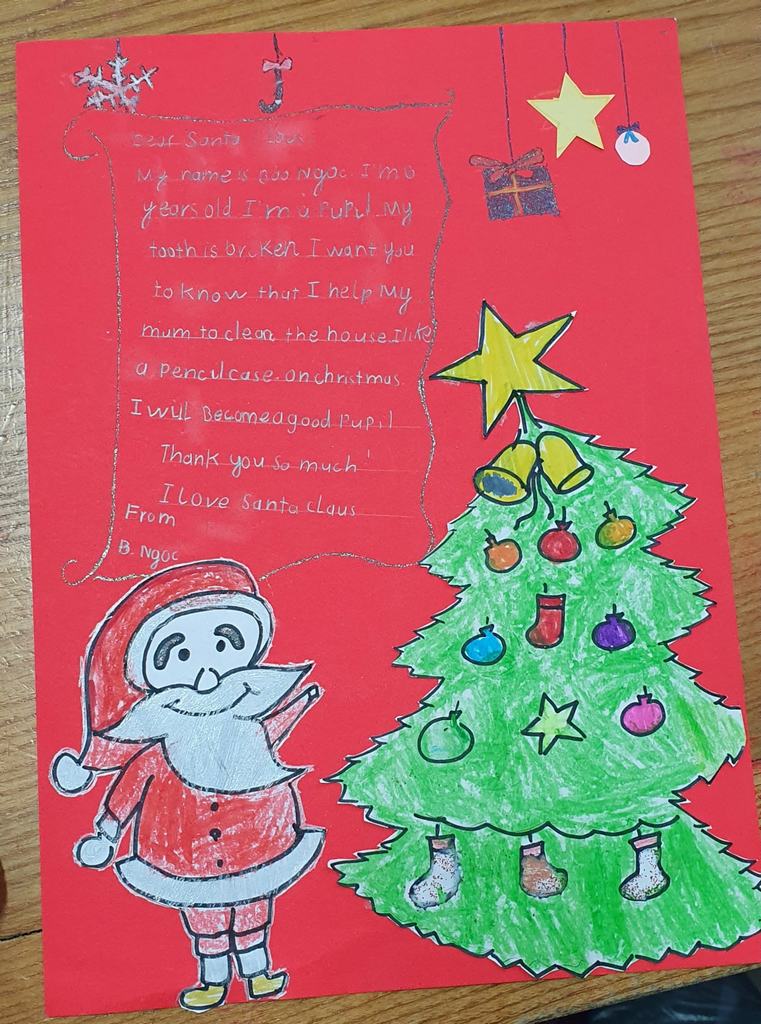 Dear Santa
My name is Bao Ngoc. I'm 6
years old I'm a Pupil. My
tooth is broken I want you
to know that I help My
mum to clean the house. I like
a pencil case. on christmas
I will Become a good Pupil
Thank you so much!
I love Santa claus
From
B. Ngoc